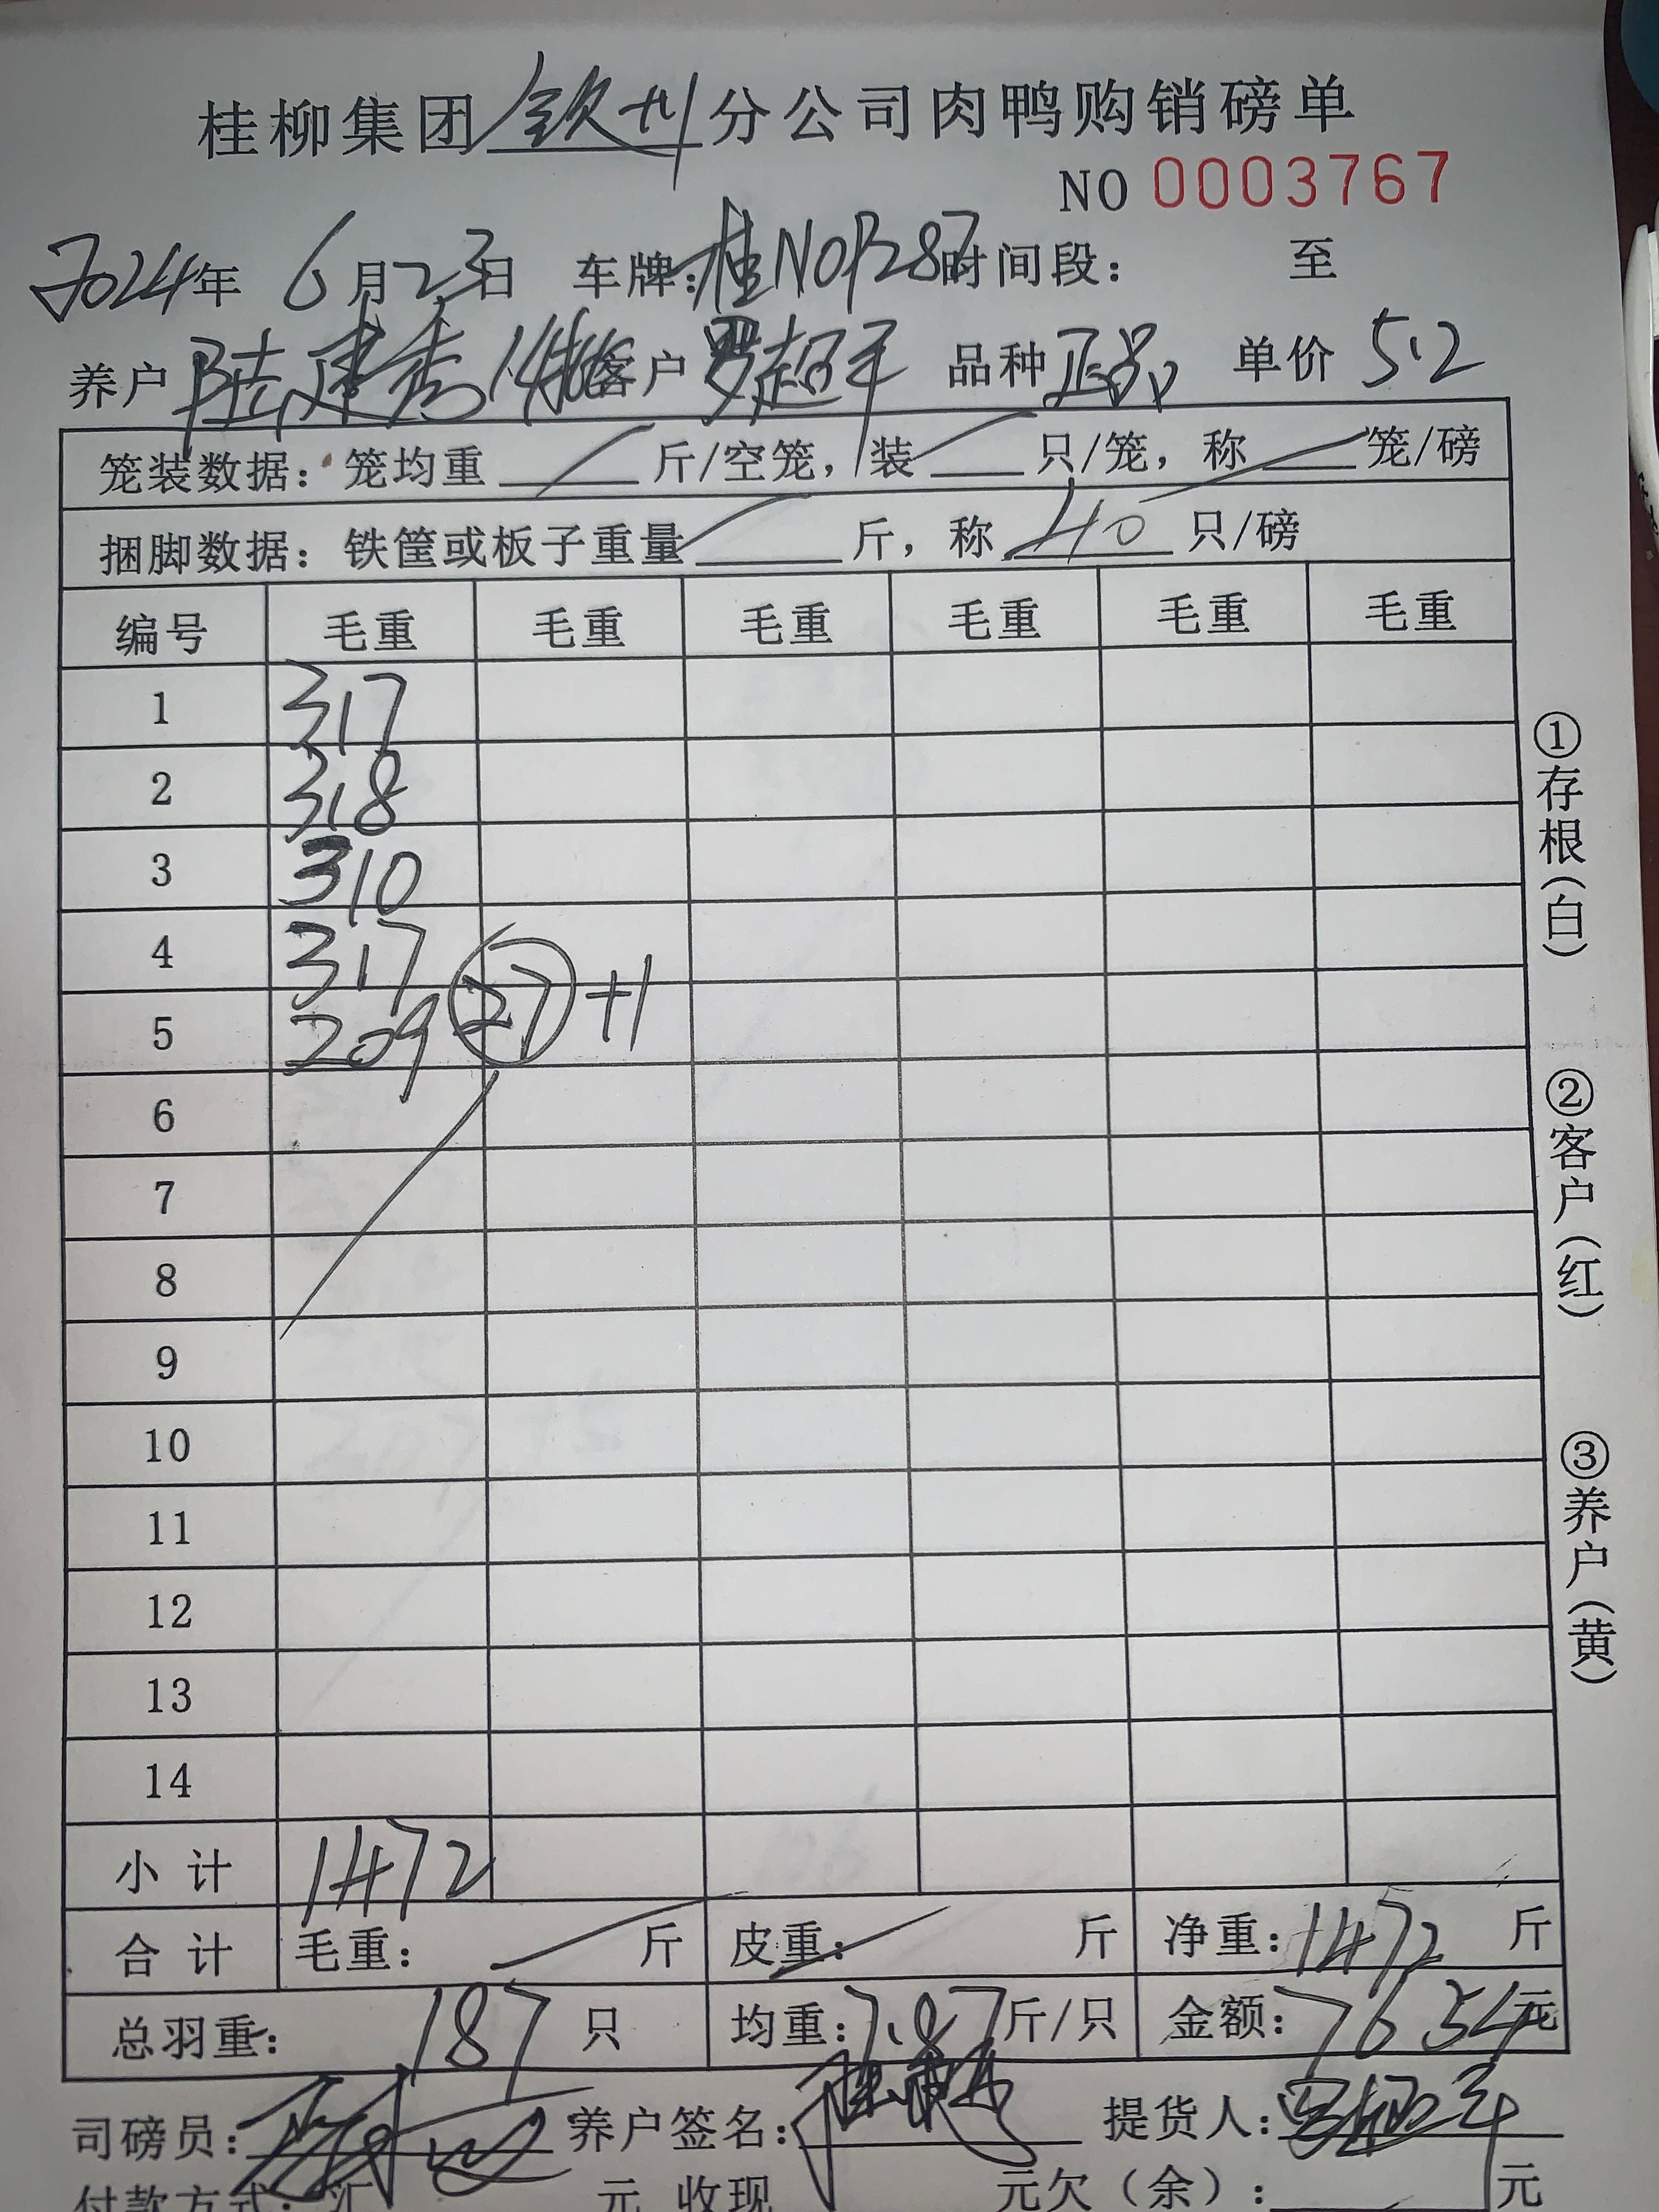 桂柳集团钦州分公司肉鸭购销磅单
NO 0003767
2024年 6月23日 车牌:桂N0B287时间段: 至
养户 陆建秀14批 客户 罗超平 品种 正品 单价 5.2
笼装数据: 笼均重 斤/空笼, 装 只/笼, 称 笼/磅
捆脚数据: 铁筐或板子重量 斤, 称 40 只/磅
编号 毛重 毛重 毛重 毛重 毛重 毛重
1 317
2 318
3 310
4 317
5 209 27 +1
6
7
8
9
10
11
12
13
14
小计 1472
合计 毛重: 斤 皮重: 斤 净重: 1472 斤
总羽重: 187 只 均重: 7.87 斤/只 金额: 7654元
司磅员: 养户签名: 提货人:
付款方式: 汇 元 收现 元欠(余): 元
①存根(白)
②客户(红)
③养户(黄)